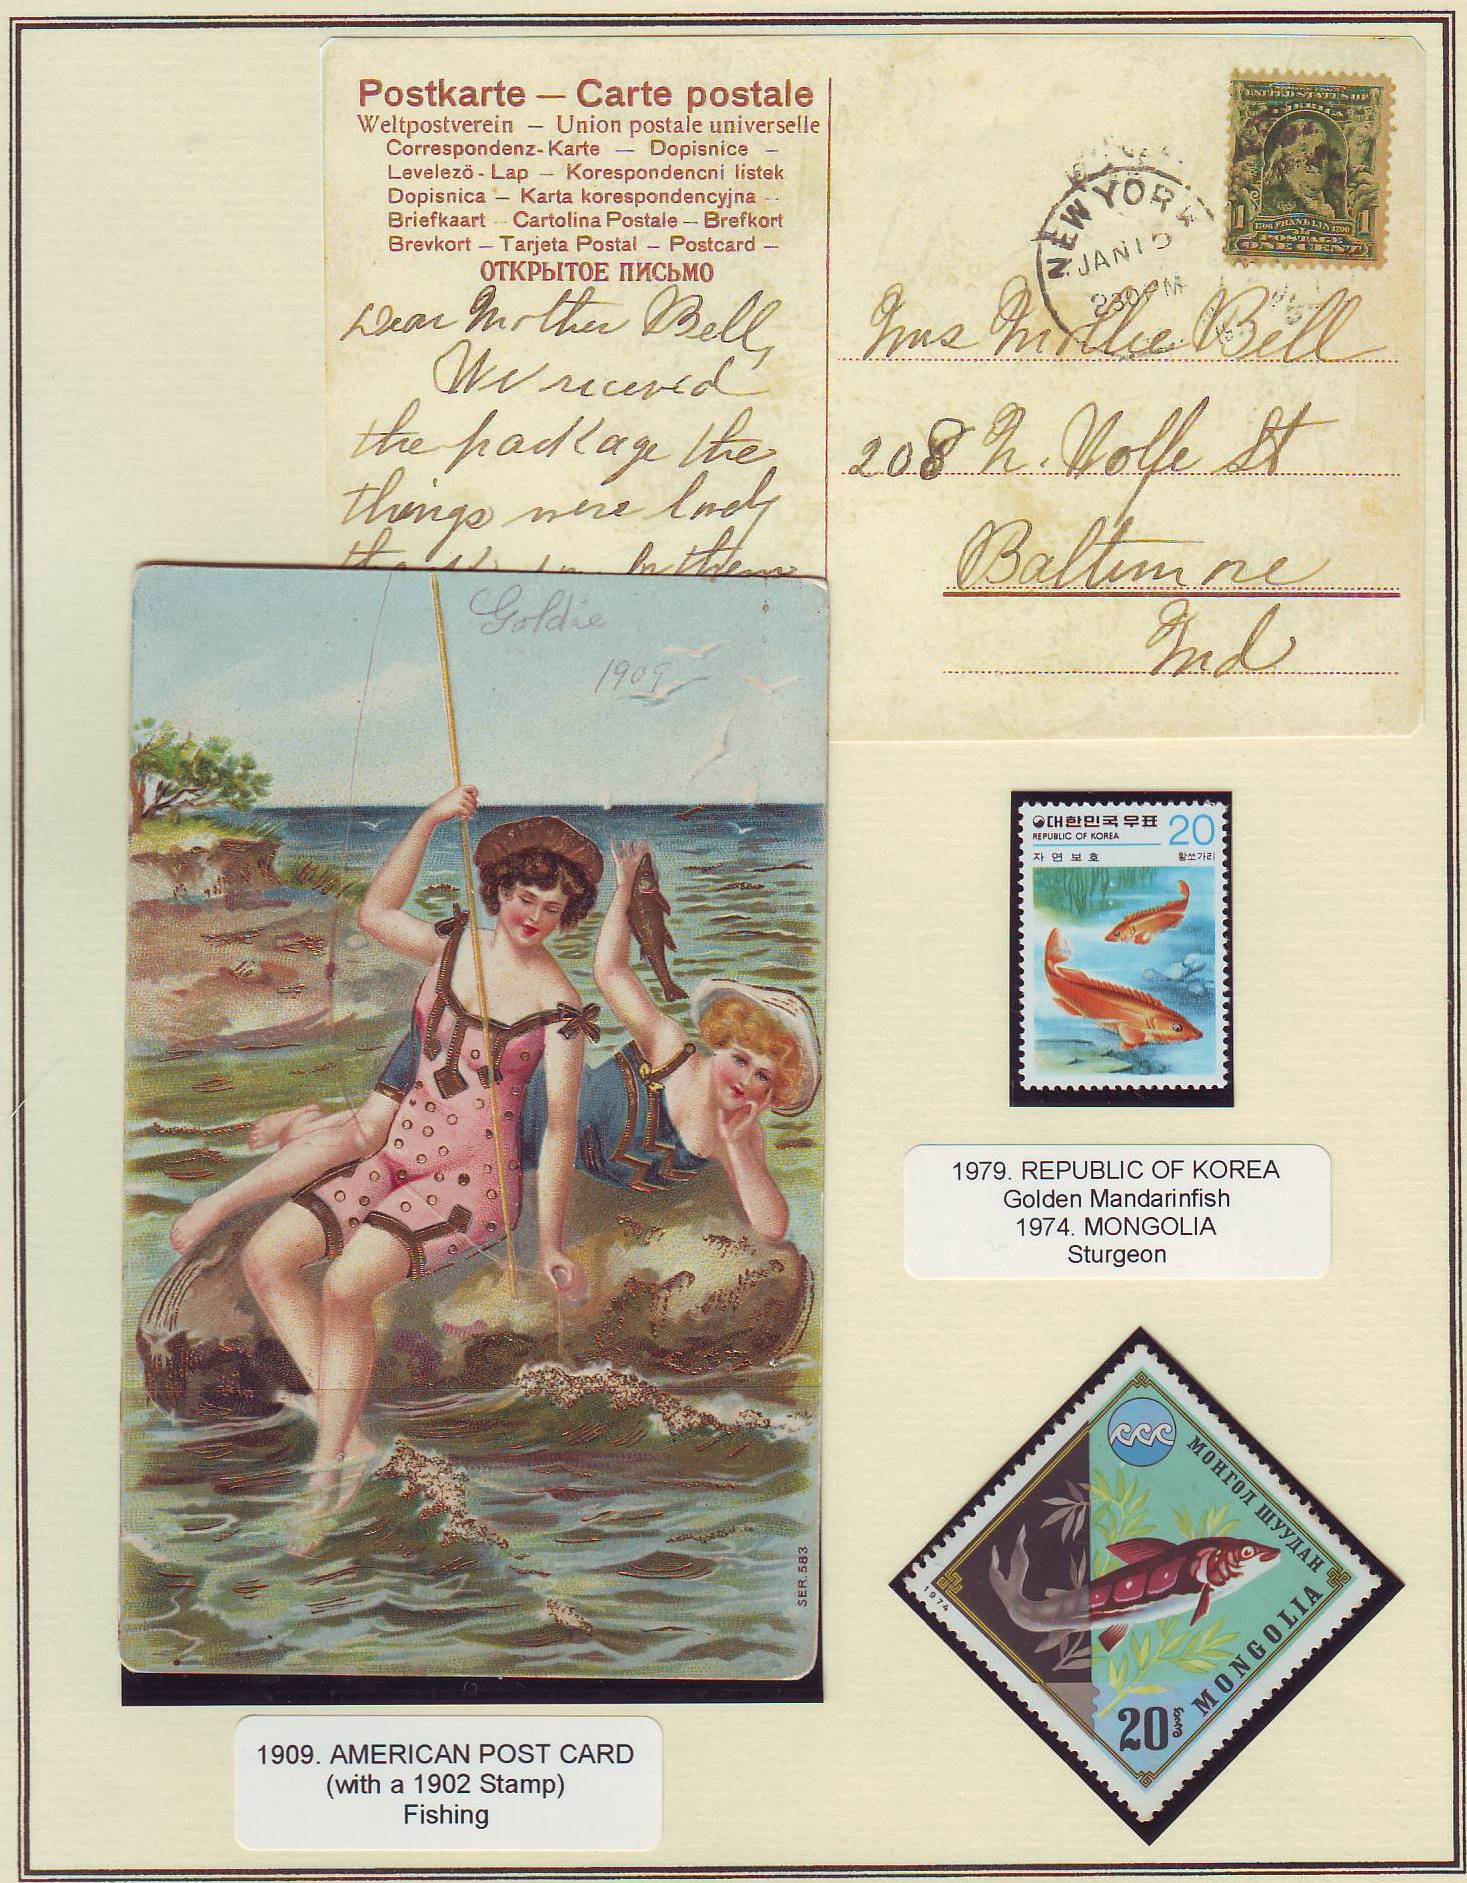 Postkarte — Carte postale
Weltpostverein — Union postale universelle
Correspondenz-Karte — Dopisnice —
Levelező-Lap — Korespondencni listek
Dopisnica — Karta korespondencyjna --
Briefkaart — Cartolina Postale — Brefkort
Brevkort — Tarjeta Postal — Postcard —
ОТКРЫТОЕ ПИСЬМО
Dear Mother Bell,
We received
the package the
things were lovely
them
UNITED STATES OF
AMERICA
1 1706 FRANKLIN 1790 1
POSTAGE
ONE CENT
NEW YORK
JAN 15
230PM
Mrs Mollie Bell
208 N. Wolfe St
Baltimore
Md
Goldie
1909
SER. 583
대한민국우표 20
REPUBLIC OF KOREA
자연보호 황쏘가리
1979. REPUBLIC OF KOREA
Golden Mandarinfish
1974. MONGOLIA
Sturgeon
МОНГОЛ ШУУДАН
1974
MONGOLIA
20
1909. AMERICAN POST CARD
(with a 1902 Stamp)
Fishing